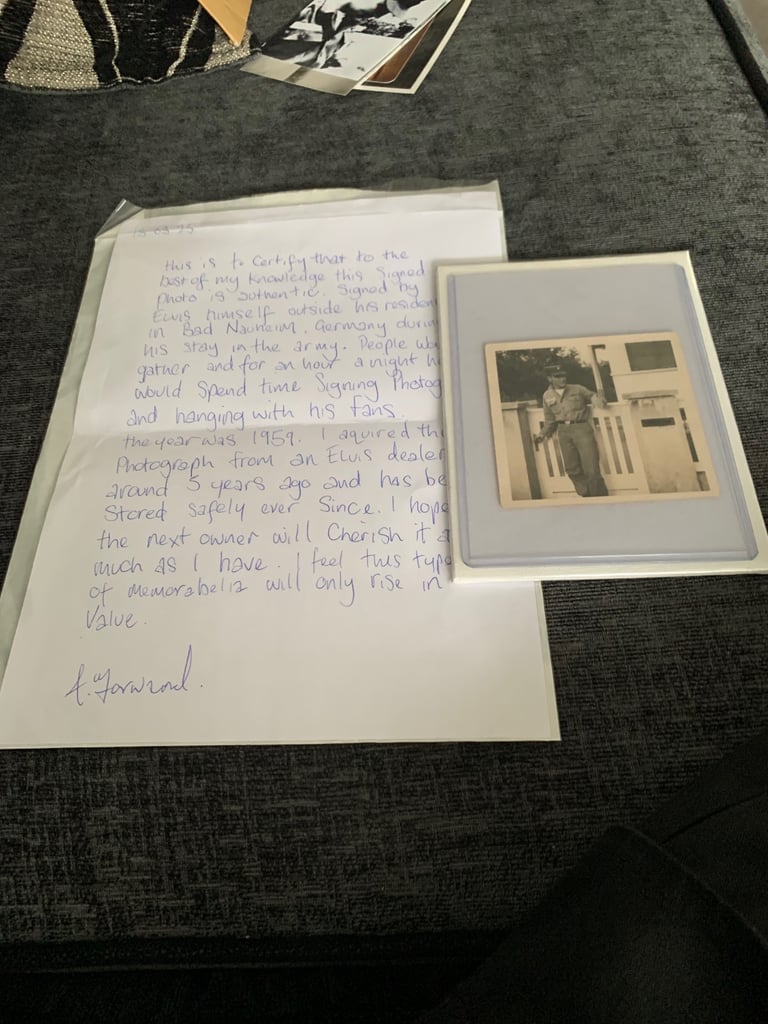 15-03-25
this is to Certify that to the
best of my knowledge this Signed
Photo is authentic. Signed by
Elvis himself outside his residen
in Bad Nauheim, Germany durin
his stay in the army. People wo
gather and for an hour a night h
would Spend time Signing Photog
and hanging with his fans.
the year was 1959. I aquired th
Photograph from an Elvis dealer
around 5 years ago and has be
Stored Safely ever Since. I hope
the next owner will Cherish it a
much as I have. I feel this type
of memorabelia will only rise in
Value.